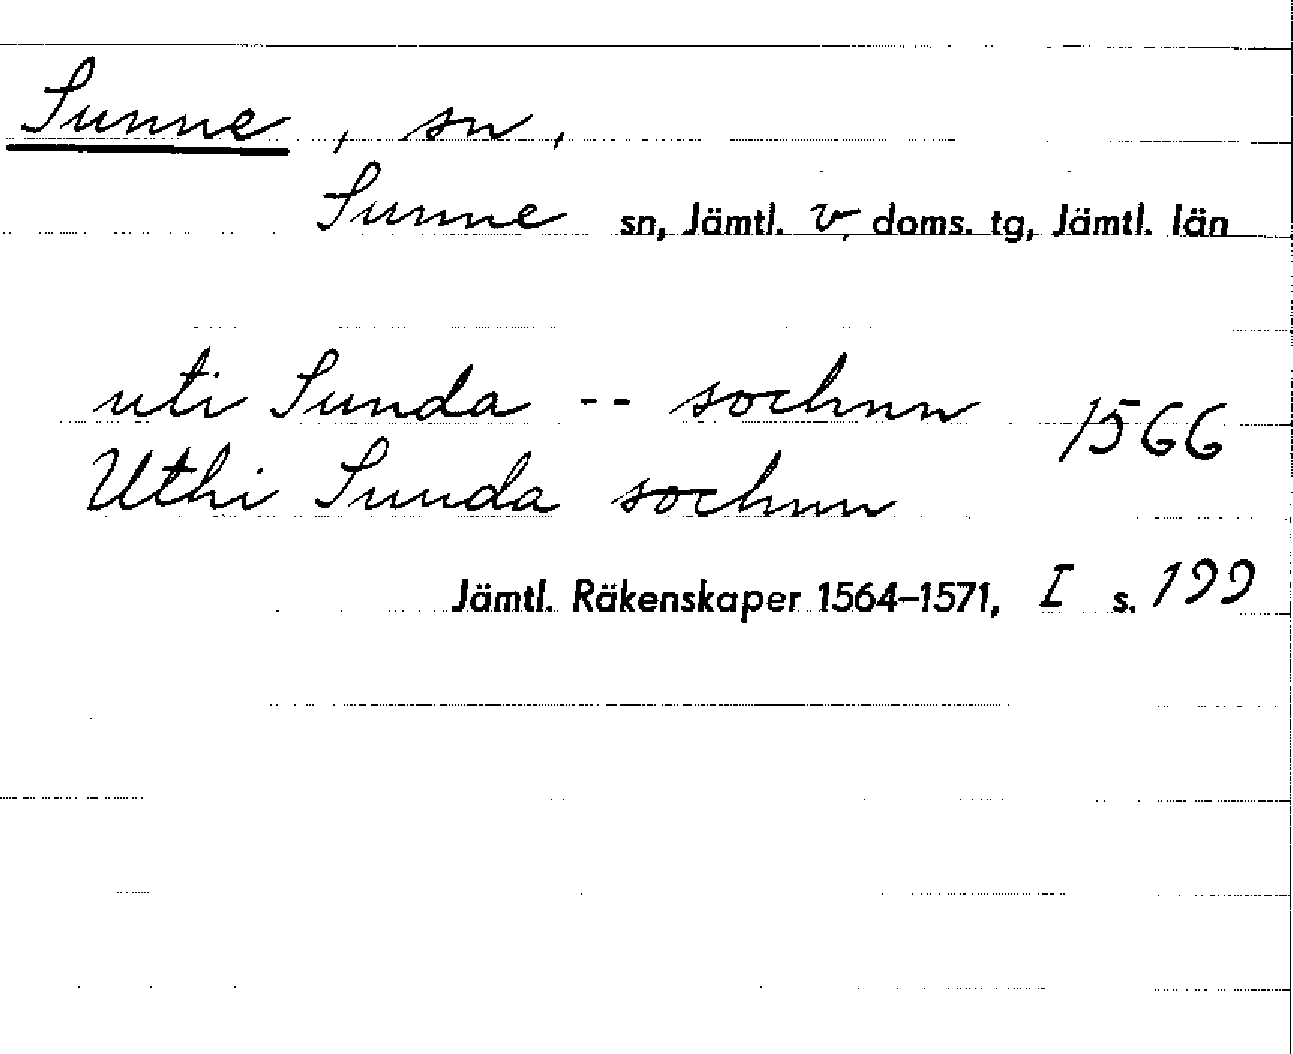 Sunne, sn,
Sunne sn, Jämtl. v. doms. tg, Jämtl. län
uti Sunda -- sochnn 1566
Uthi Sunda sochnn
Jämtl. Räkenskaper 1564–1571, I s. 199